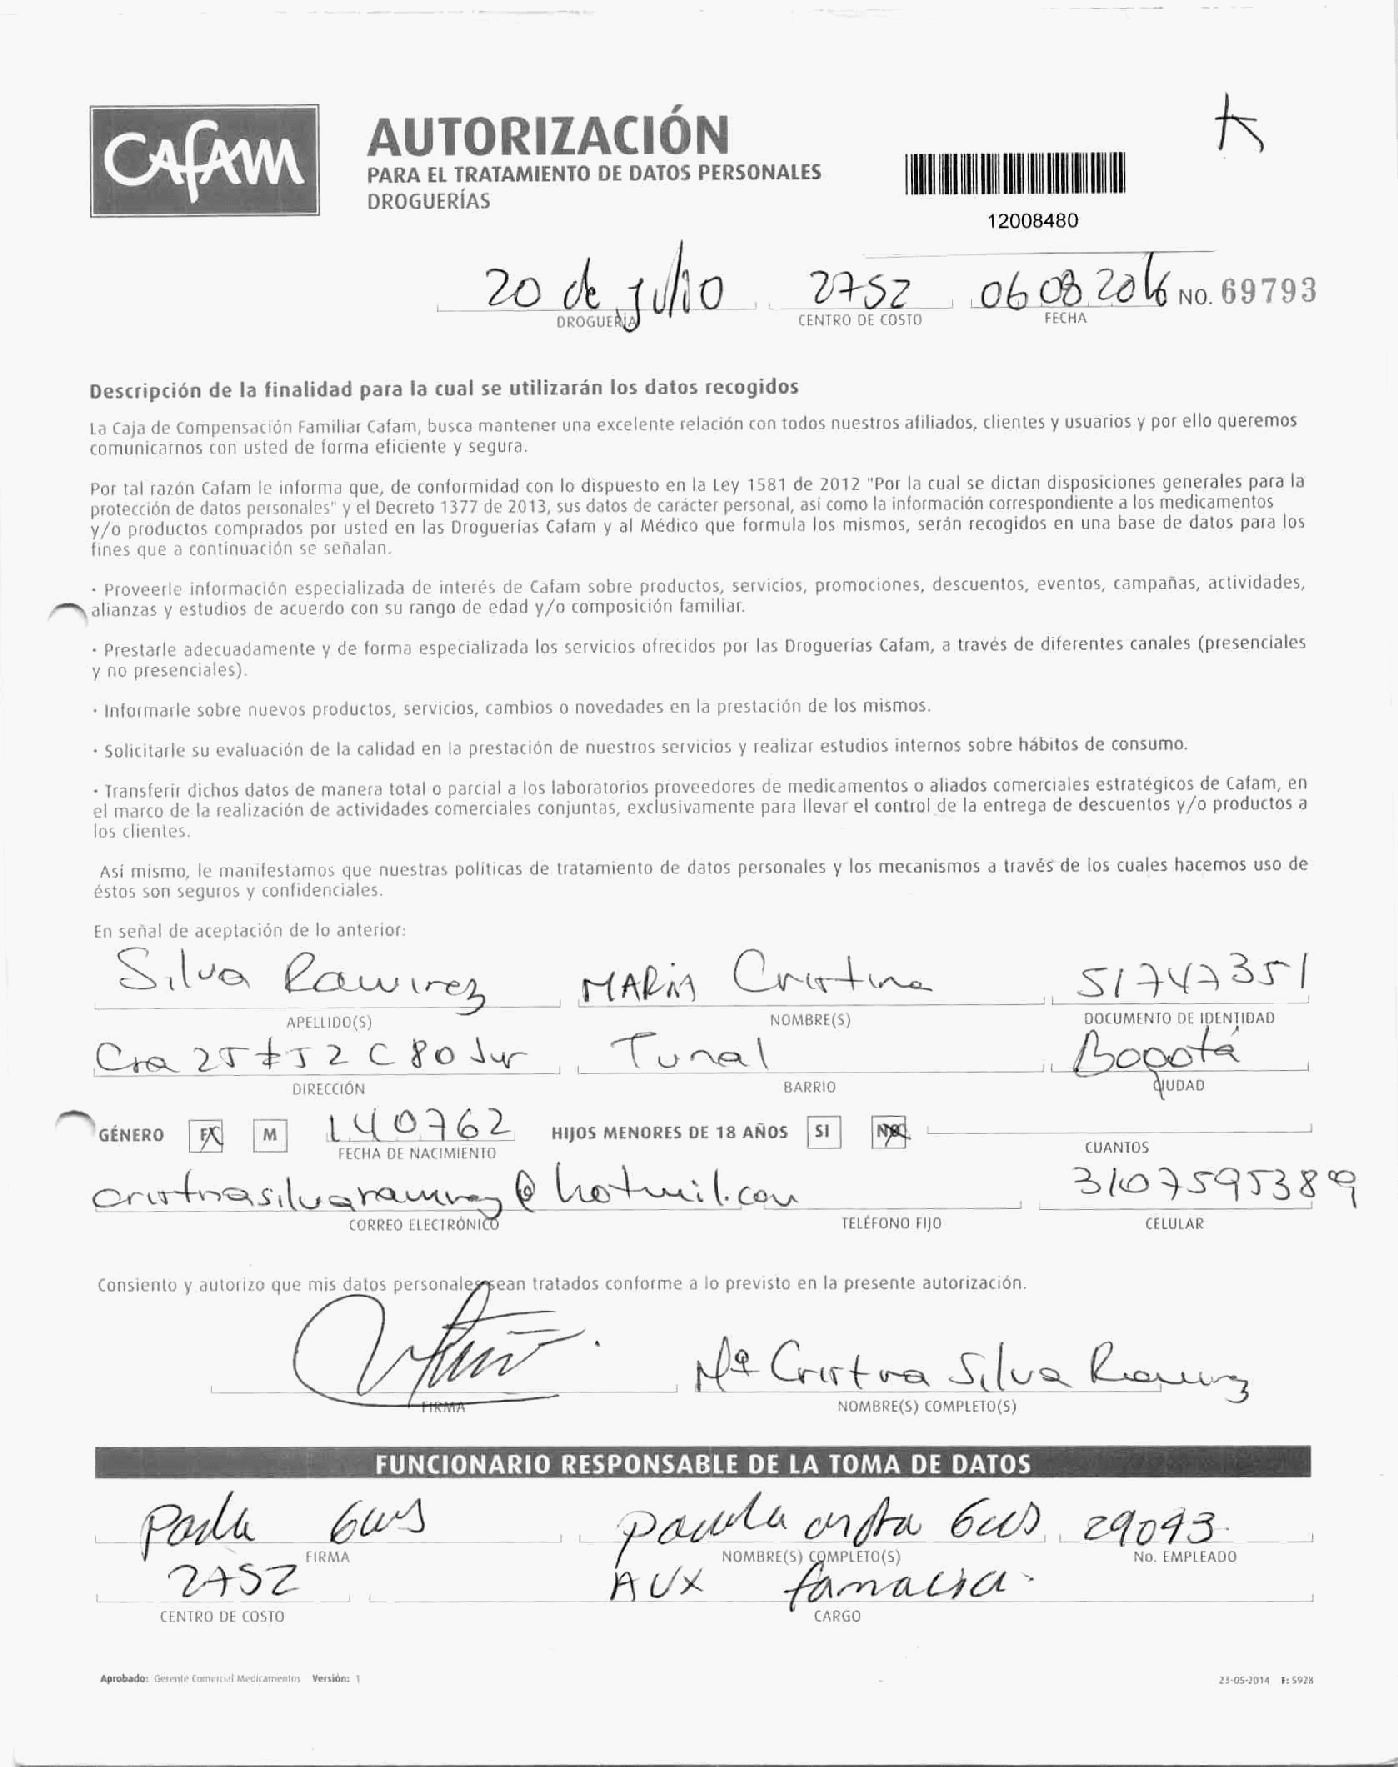 CAFAM
AUTORIZACIÓN
PARA EL TRATAMIENTO DE DATOS PERSONALES
DROGUERÍAS
12008480
20 de julio 2752 06 08 2016 NO. 69793
DROGUERÍA CENTRO DE COSTO FECHA
Descripción de la finalidad para la cual se utilizarán los datos recogidos
La Caja de Compensación Familiar Cafam, busca mantener una excelente relación con todos nuestros afiliados, clientes y usuarios y por ello queremos
comunicarnos con usted de forma eficiente y segura.
Por tal razón Cafam le informa que, de conformidad con lo dispuesto en la Ley 1581 de 2012 "Por la cual se dictan disposiciones generales para la
protección de datos personales" y el Decreto 1377 de 2013, sus datos de carácter personal, así como la información correspondiente a los medicamentos
y/o productos comprados por usted en las Droguerías Cafam y al Médico que formula los mismos, serán recogidos en una base de datos para los
fines que a continuación se señalan.
· Proveerle información especializada de interés de Cafam sobre productos, servicios, promociones, descuentos, eventos, campañas, actividades,
alianzas y estudios de acuerdo con su rango de edad y/o composición familiar.
· Prestarle adecuadamente y de forma especializada los servicios ofrecidos por las Droguerías Cafam, a través de diferentes canales (presenciales
y no presenciales).
· Informarle sobre nuevos productos, servicios, cambios o novedades en la prestación de los mismos.
· Solicitarle su evaluación de la calidad en la prestación de nuestros servicios y realizar estudios internos sobre hábitos de consumo.
· Transferir dichos datos de manera total o parcial a los laboratorios proveedores de medicamentos o aliados comerciales estratégicos de Cafam, en
el marco de la realización de actividades comerciales conjuntas, exclusivamente para llevar el control de la entrega de descuentos y/o productos a
los clientes.
Así mismo, le manifestamos que nuestras políticas de tratamiento de datos personales y los mecanismos a través de los cuales hacemos uso de
éstos son seguros y confidenciales.
En señal de aceptación de lo anterior:
Silva Ramirez MARIA Cristina 51747351
APELLIDO(S) NOMBRE(S) DOCUMENTO DE IDENTIDAD
Cra 25 # 52 C 80 Sur Tunal Bogotá
DIRECCIÓN BARRIO CIUDAD
GÉNERO F M 140762 HIJOS MENORES DE 18 AÑOS SI NO
FECHA DE NACIMIENTO CUANTOS
cristinasilvaramirez@hotmail.com 3107595389
CORREO ELECTRÓNICO TELÉFONO FIJO CELULAR
Consiento y autorizo que mis datos personales sean tratados conforme a lo previsto en la presente autorización.
Mª Cristina Silva Ramirez
FIRMA NOMBRE(S) COMPLETO(S)
FUNCIONARIO RESPONSABLE DE LA TOMA DE DATOS
Paula 29093
FIRMA NOMBRE(S) COMPLETO(S) No. EMPLEADO
2752 AUX farmacia.
CENTRO DE COSTO CARGO
Aprobado: Gerente Comercial Medicamentos Versión: 1 23-05-2014 F: 5928